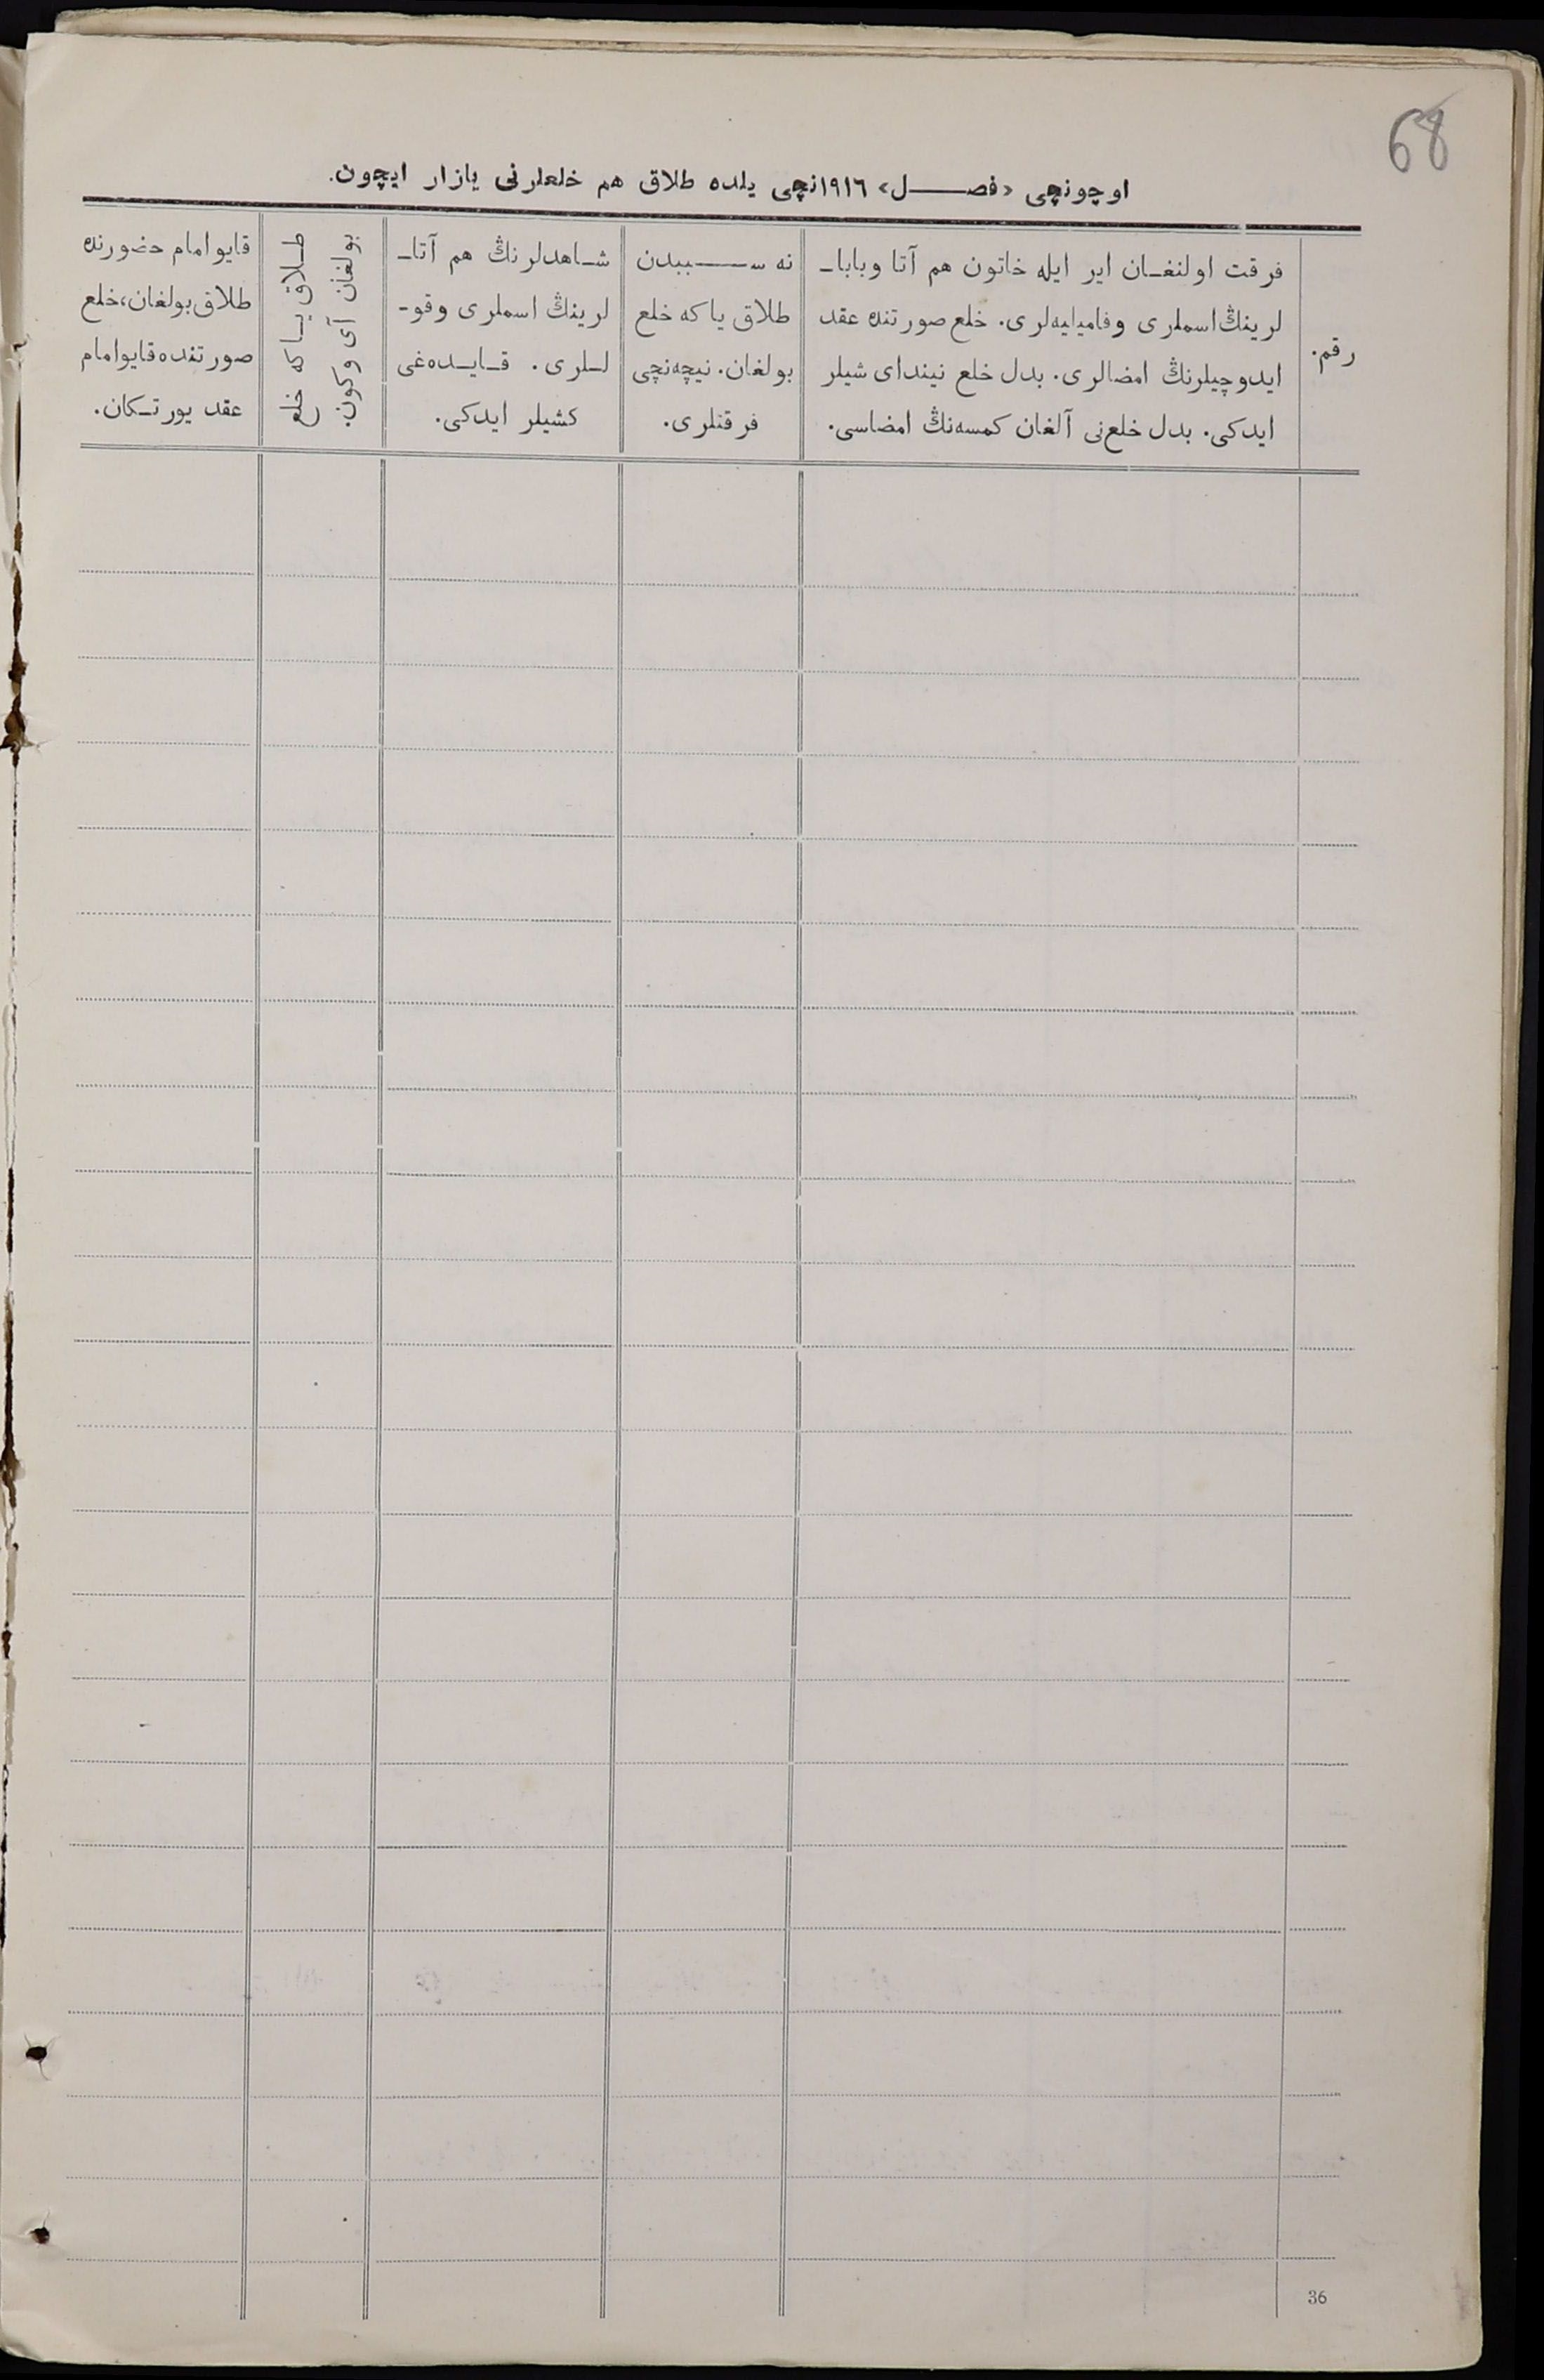 68
اوچونچی «فصل» ١٩١٦نچی یلده طلاق هم خلعلرنی یازار ایچون.
رقم.
فرقت اولنغان ایر ایله خاتون هم آتا وبابا-
لرینڭ اسملری وفامیلیه‌لری. خلع صورتنده عقد
ایدوچیلرنڭ امضالری. بدل خلع نیندای شیلر
ایدکی. بدل خلع‌نی آلغان کمسه‌نڭ امضاسی.
نه سببدن
طلاق یا که خلع
بولغان. نیچه‌نچی
فرقتلری.
شاهدلرنڭ هم آتا-
لرینڭ اسملری وفو-
لری. قایده‌غی
کشیلر ایدکی.
طلاق یا که خلع
بولغان آی وکون.
قایو امام حضورنده
طلاق بولغان، خلع
صورتنده قایو امام
عقد یورتکان.
36